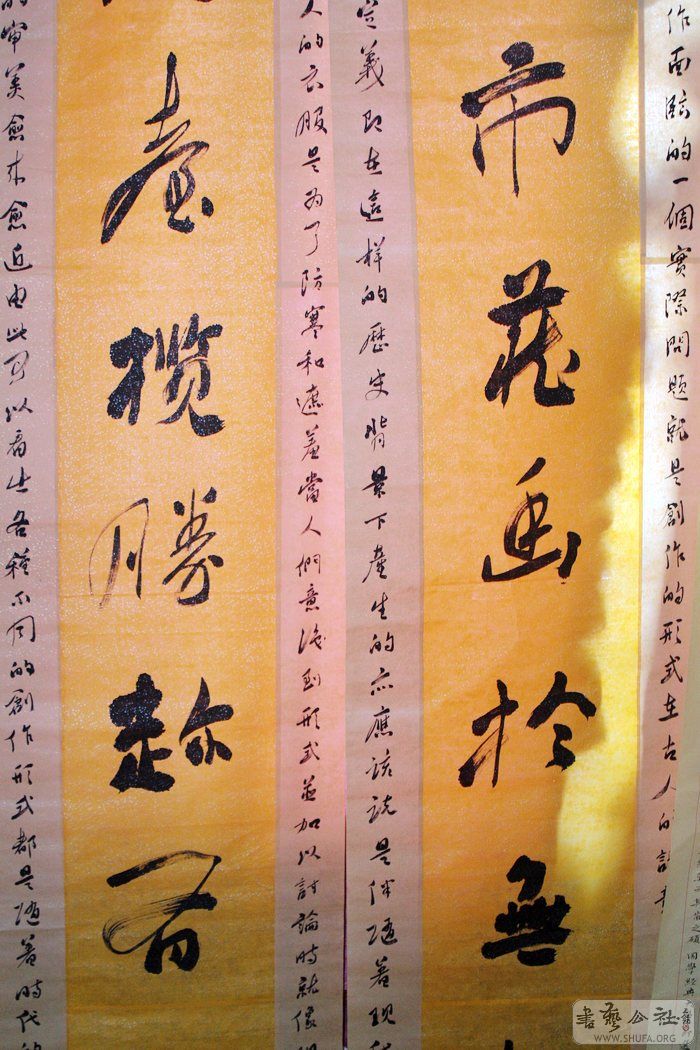 作面臨的一個實際問題就是創作的形式在古人的
市藏画於無
定義即在這样的歷史背景下產生的亦應該説是伴隨着現代
人的衣服是为了防寒和遮羞當人們意识到形式並加以討論時就像
臺揽勝趂
的審美愈來愈近由此可以看出各種不同的創作形式都是隨着時代的
書藝公社
WWW.SHUFA.ORG